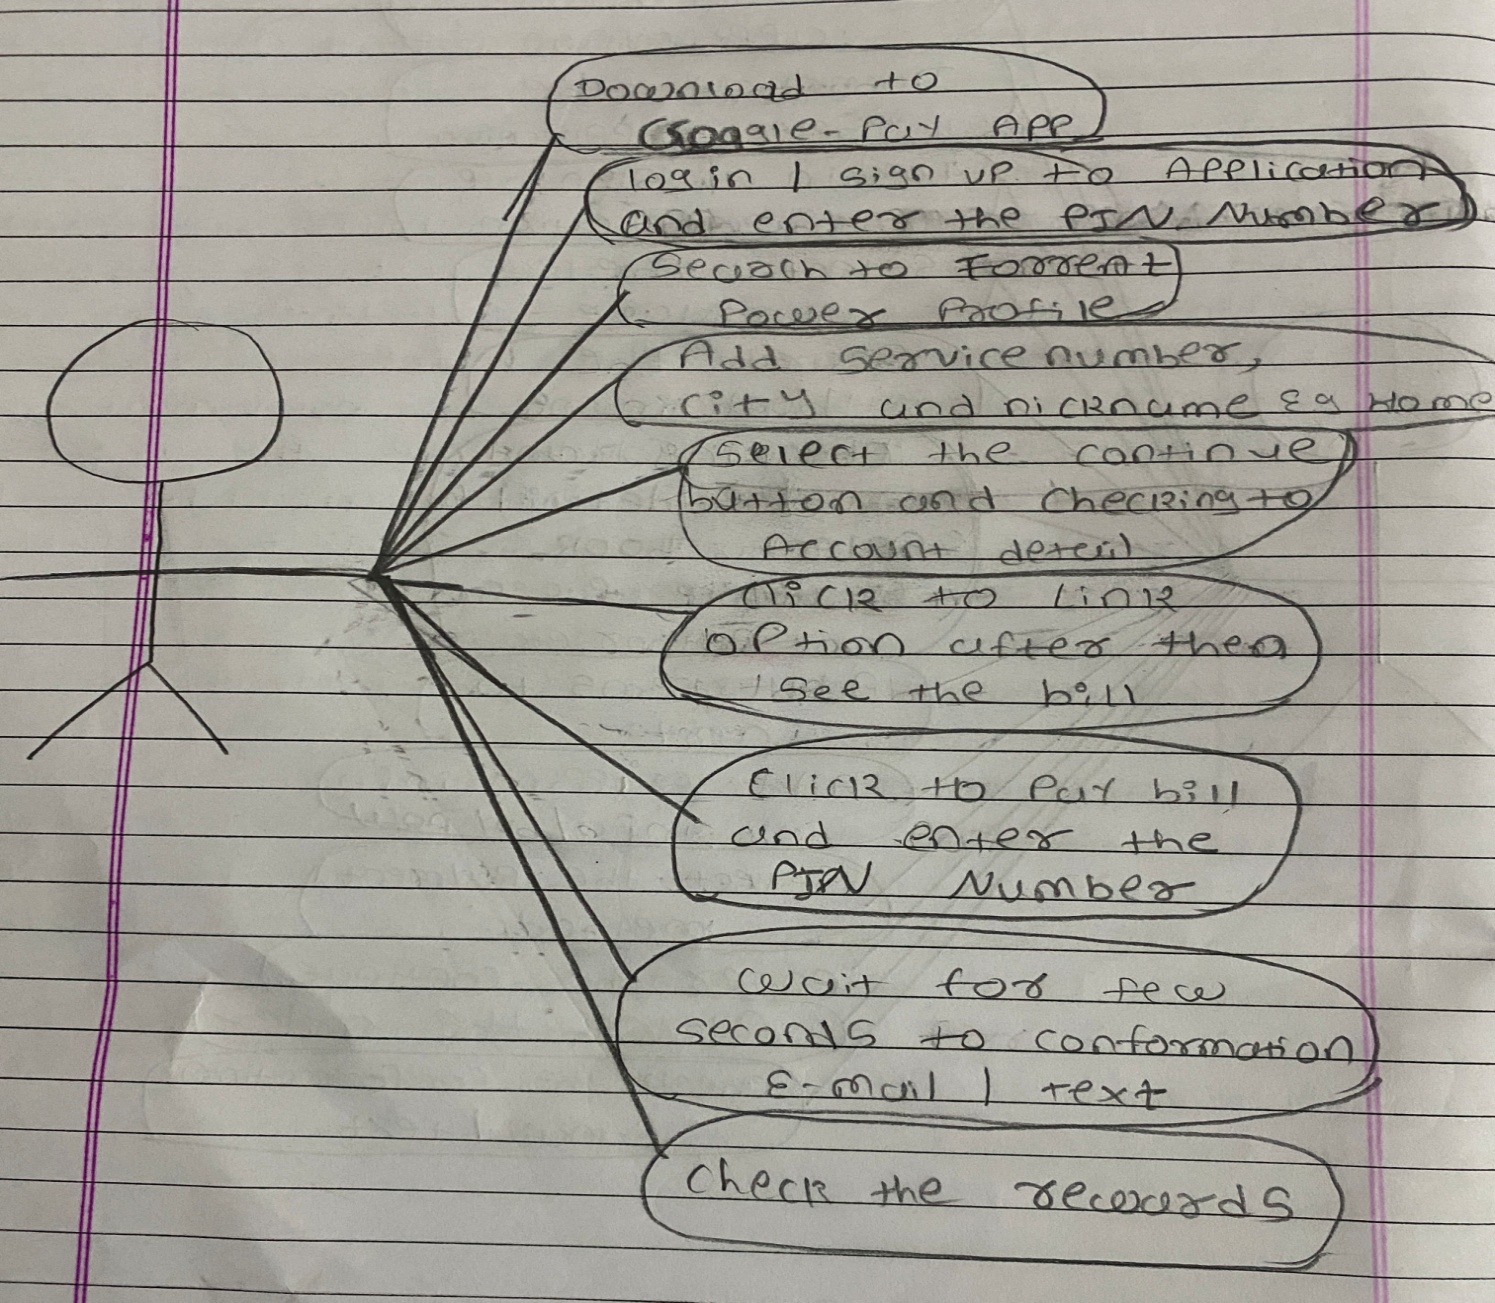 Download to
Goggle-Pay APP
login / sign up to Application
and enter the PIN Number
Search to Torrent
Power Profile
Add service number,
city and nickname Eg Home
Select the continue
button and checking to
Account detail
Click to Link
option after then
see the bill
Click to Pay bill
and enter the
PIN Number
wait for few
seconds to conformation
E-mail / text
check the